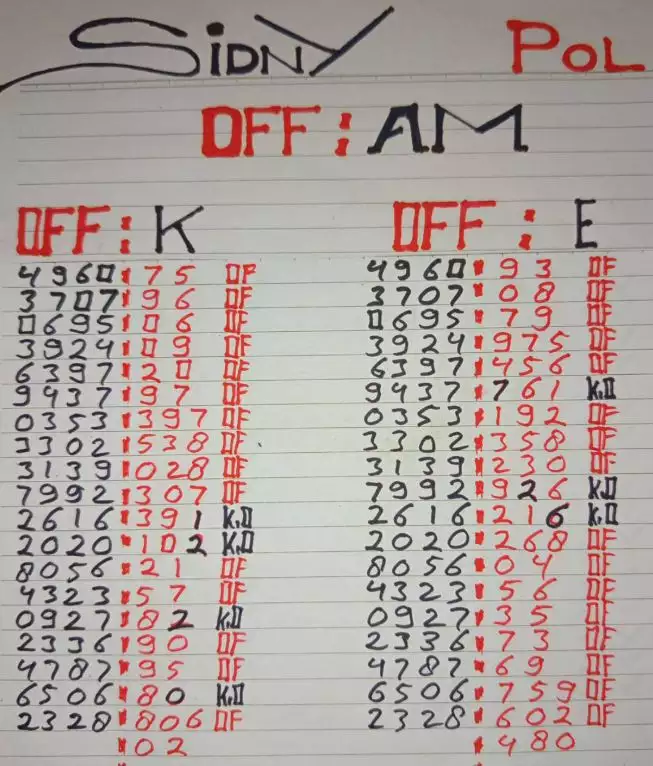 SIDNY POL
OFF: AM
OFF: K OFF: E
4960:75 OF 4960:93 OF
3707:96 OF 3707:08 OF
0695:06 OF 0695:79 OF
3924:09 OF 3924:975 OF
6397:20 OF 6397:456 OF
9437:97 OF 9437:761 K.O
0353:397 OF 0353:192 OF
3302:538 OF 3302:358 OF
3139:028 OF 3139:230 OF
7992:307 OF 7992:926 K.O
2616:391 K.O 2616:216 K.O
2020:102 K.O 2020:268 OF
8056:21 OF 8056:04 OF
4323:57 OF 4323:56 OF
0927:82 K.O 0927:35 OF
2336:90 OF 2336:73 OF
4787:95 OF 4787:69 OF
6506:80 K.O 6506:759 OF
2328:806 OF 2328:602 OF
:02 :480